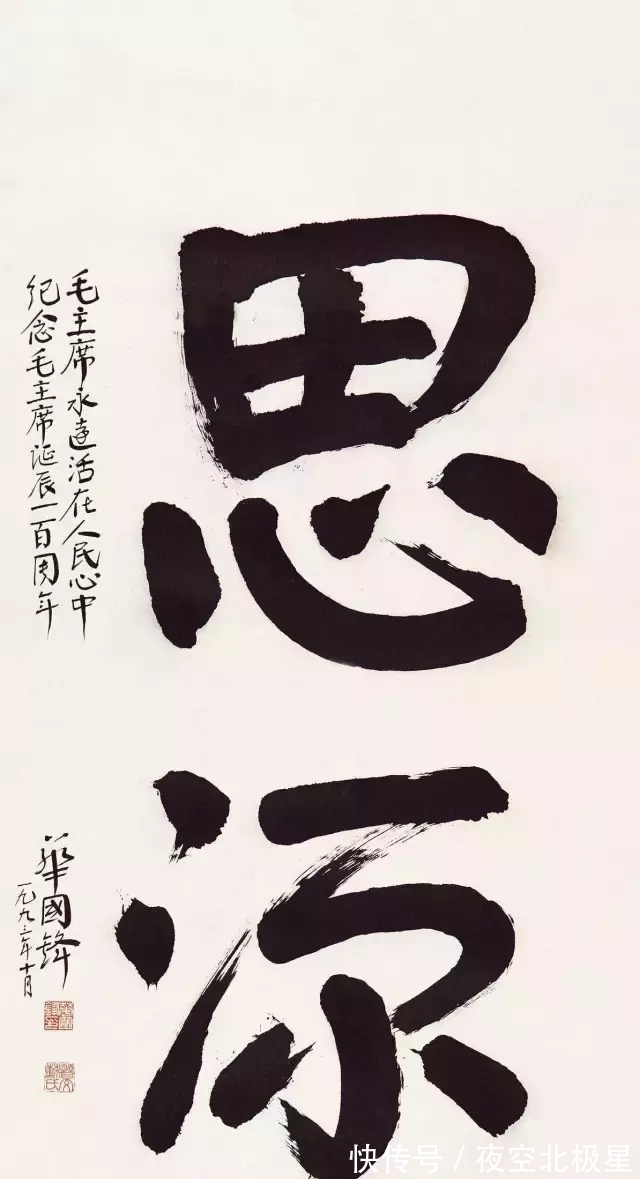 思源
毛主席永遠活在人民心中
纪念毛主席诞辰一百周年
華國鋒
一九九三年十月
快传号 / 夜空北极星